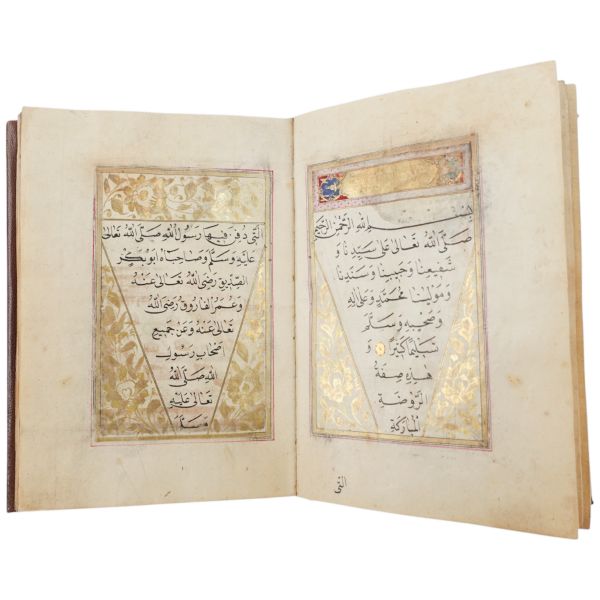 بسم الله الرحمن الرحيم
صلى الله تعالى على سيدنا و
شفيعنا وحبيبنا وسندنا
ومولينا محمد وعلى اله
وصحبه وسلم
تسليما كثيرا و
هذه صفة
الروضة
المباركة
التى
التى دفن فيها رسول الله صلى الله تعالى
عليه وسلم وصاحباه ابو بكر
الصديق رضى الله تعالى عنه
وعمر الفاروق رضى الله
تعالى عنه وعن جميع
صحاب رسول
الله صلى الله
تعالى عليه
وسلم